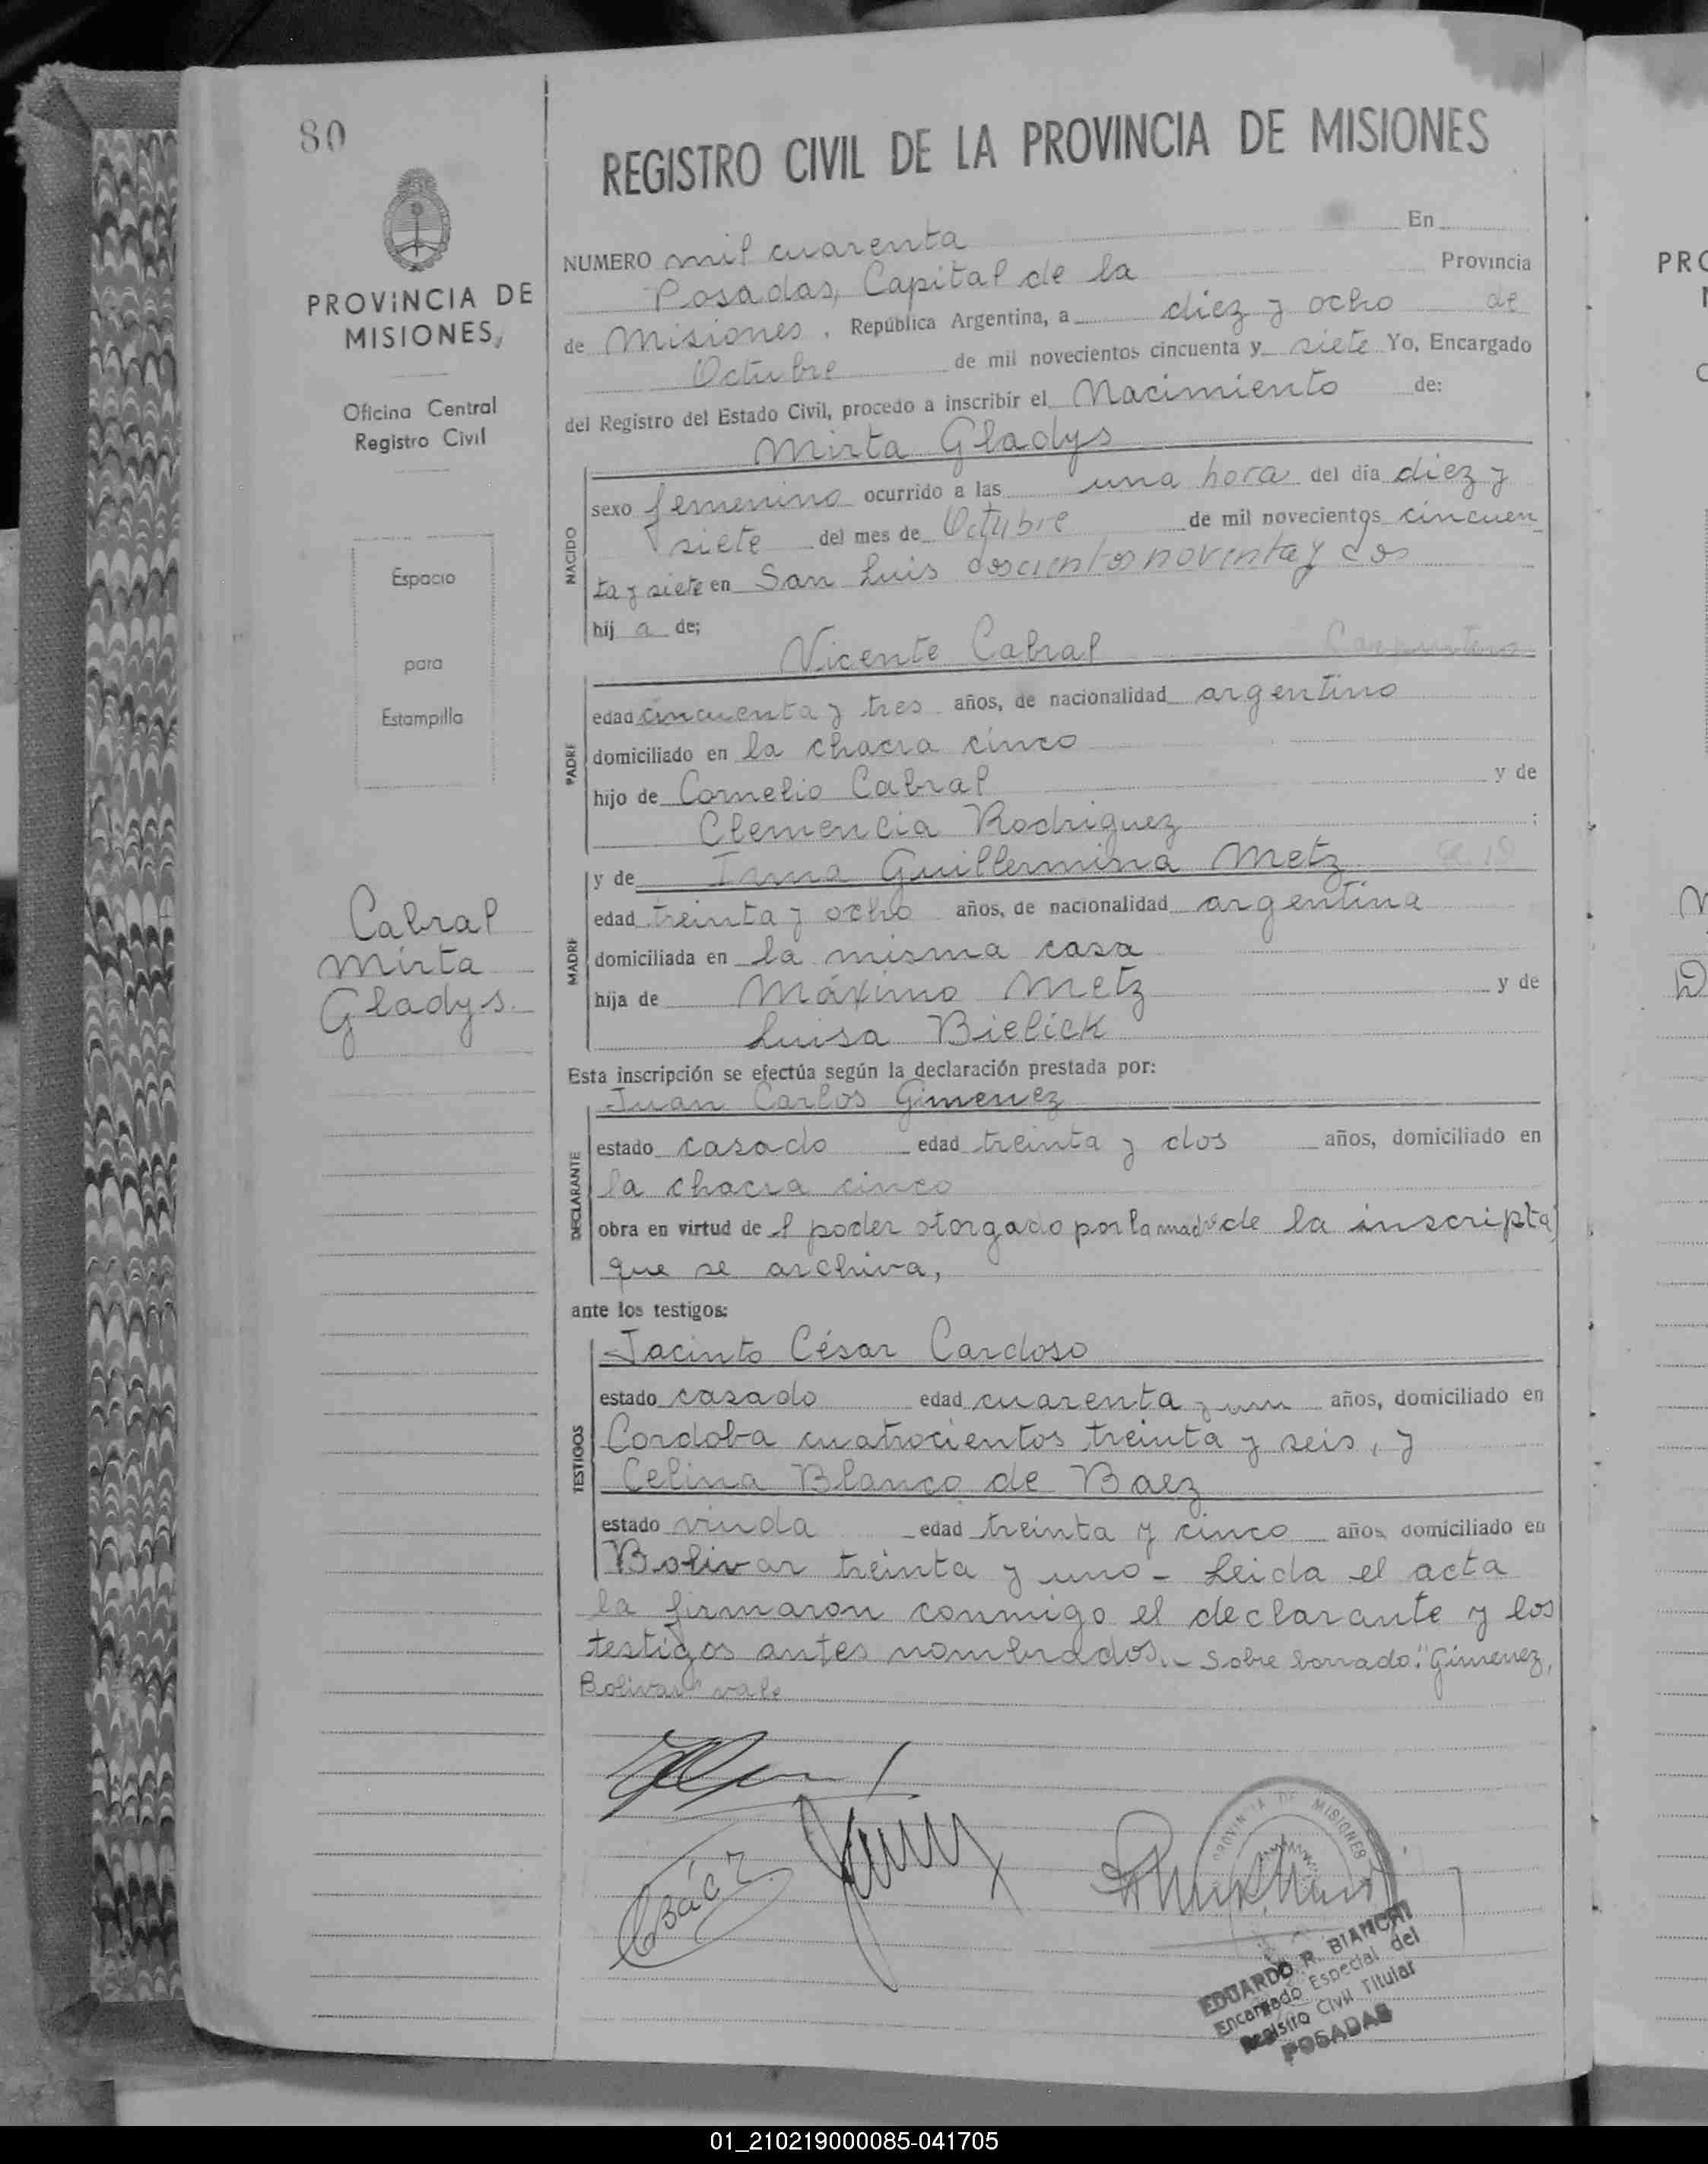 80
PROVINCIA DE
MISIONES,
Oficina Central
Registro Civil
Espacio
para
Estampilla
Cabral
Mirta
Gladys.
REGISTRO CIVIL DE LA PROVINCIA DE MISIONES
NUMERO mil cuarenta En
Posadas, Capital de la Provincia
de Misiones, República Argentina, a diez y ocho de
Octubre de mil novecientos cincuenta y siete Yo, Encargado
del Registro del Estado Civil, procedo a inscribir el Nacimiento de:
Mirta Gladys
NACIDO
sexo femenino ocurrido a las una hora del día diez y
siete del mes de Octubre de mil novecientos cincuen
ta y siete en San Luis doscientos noventa y dos
hij a de;
Vicente Cabral Carpintero
PADRE
edad cincuenta y tres años, de nacionalidad argentino
domiciliado en la chacra cinco
hijo de Cornelio Cabral y de
Clemencia Rodriguez ;
y de Irma Guillermina Metz
MADRE
edad treinta y ocho años, de nacionalidad argentina
domiciliada en la misma casa
hija de Máximo Metz y de
Luisa Bielick
Esta inscripción se efectúa según la declaración prestada por:
Juan Carlos Gimenez
DECLARANTE
estado casado edad treinta y dos años, domiciliado en
la chacra cinco
obra en virtud de l poder otorgado por la madre de la inscripta
que se archiva,
ante los testigos:
TESTIGOS
Jacinto César Cardoso
estado casado edad cuarenta y un años, domiciliado en
Cordoba cuatrocientos treinta y seis, y
Celina Blanco de Baez
estado viuda edad treinta y cinco años domiciliado en
Bolivar treinta y uno - Leida el acta
la firmaron conmigo el declarante y los
testigos antes nombrados.- Sobre borrado: "Gimenez,
Bolivar" vale
Báez
PROVINCIA DE MISIONES
EDUARDO R. BIANCHI
Encargado Especial del
Registro Civil Titular
POSADAS
PRO
01_210219000085-041705